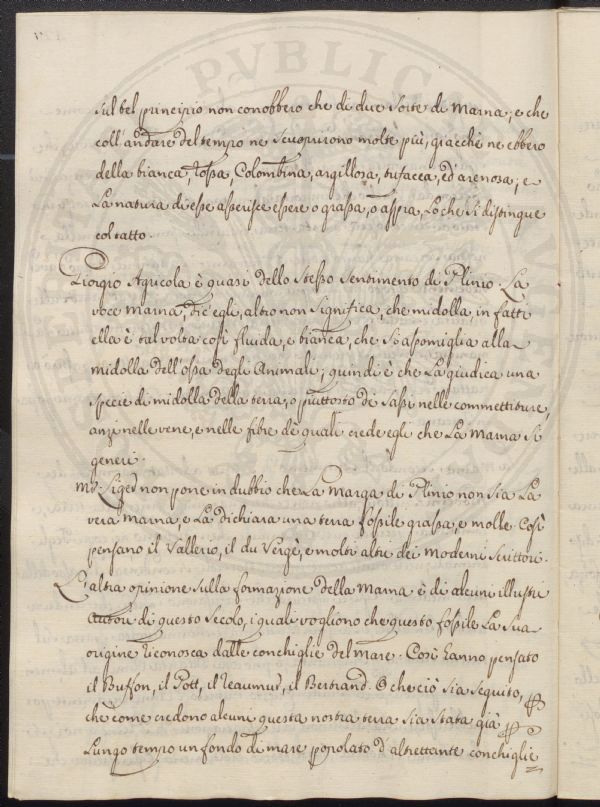 sul bel principio non conobbero che di due Sorte di Marna; e che
coll'andare del tempo ne scuoprirono molte più, giacchè ne ebbero
della bianca, rossa, Colombina, argillosa, tufacea, ed arenosa; e
La natura di esse asserisce essere o grassa, o asspra, Lo che si distingue
col tatto.
Giorgio Agricola è quasi dello Stesso Sentimento di Plinio. La
voce Marna, dic'egli, altro non Significa, che midolla, in fatti
ella è tal volta così fluida, e bianca, che Si assomiglia alla
midolla dell'ossa degli Animali; quindi è che La giudica una
specie di midolla della terra, o piuttosto de' Sassi nelle commettiture,
anzi nelle vene, e nelle fibre de' quali crede egli che La Marna Si
generi.
Mr. Liger non pone in dubbio che La Marga di Plinio non Sia La
vera Marna, e La dichiara una terra fossile grassa, e molle. Così
pensano il Vallerio, il du Vergè, e molti altri dei Moderni Scrittori.
L'altra opinione Sulla formazione della Marna è di alcuni illustri
Autori di questo Secolo, i quali vogliono che questo fossile La Sua
origine riconosca dalle conchiglie del mare. Così hanno pensato
il Buffon, il Pott, il Reaumur, il Bertrand. O che ciò Sia Seguito,
chè come credono alcuni questa nostra terra Sia Stata già
Lungo tempo un fondo di mare popolato d'altrettante conchiglie